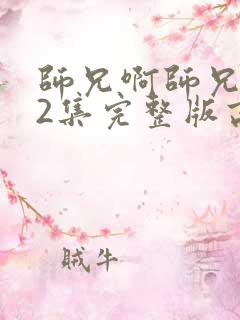 師兄啊師兄
2集完整版
賊牛